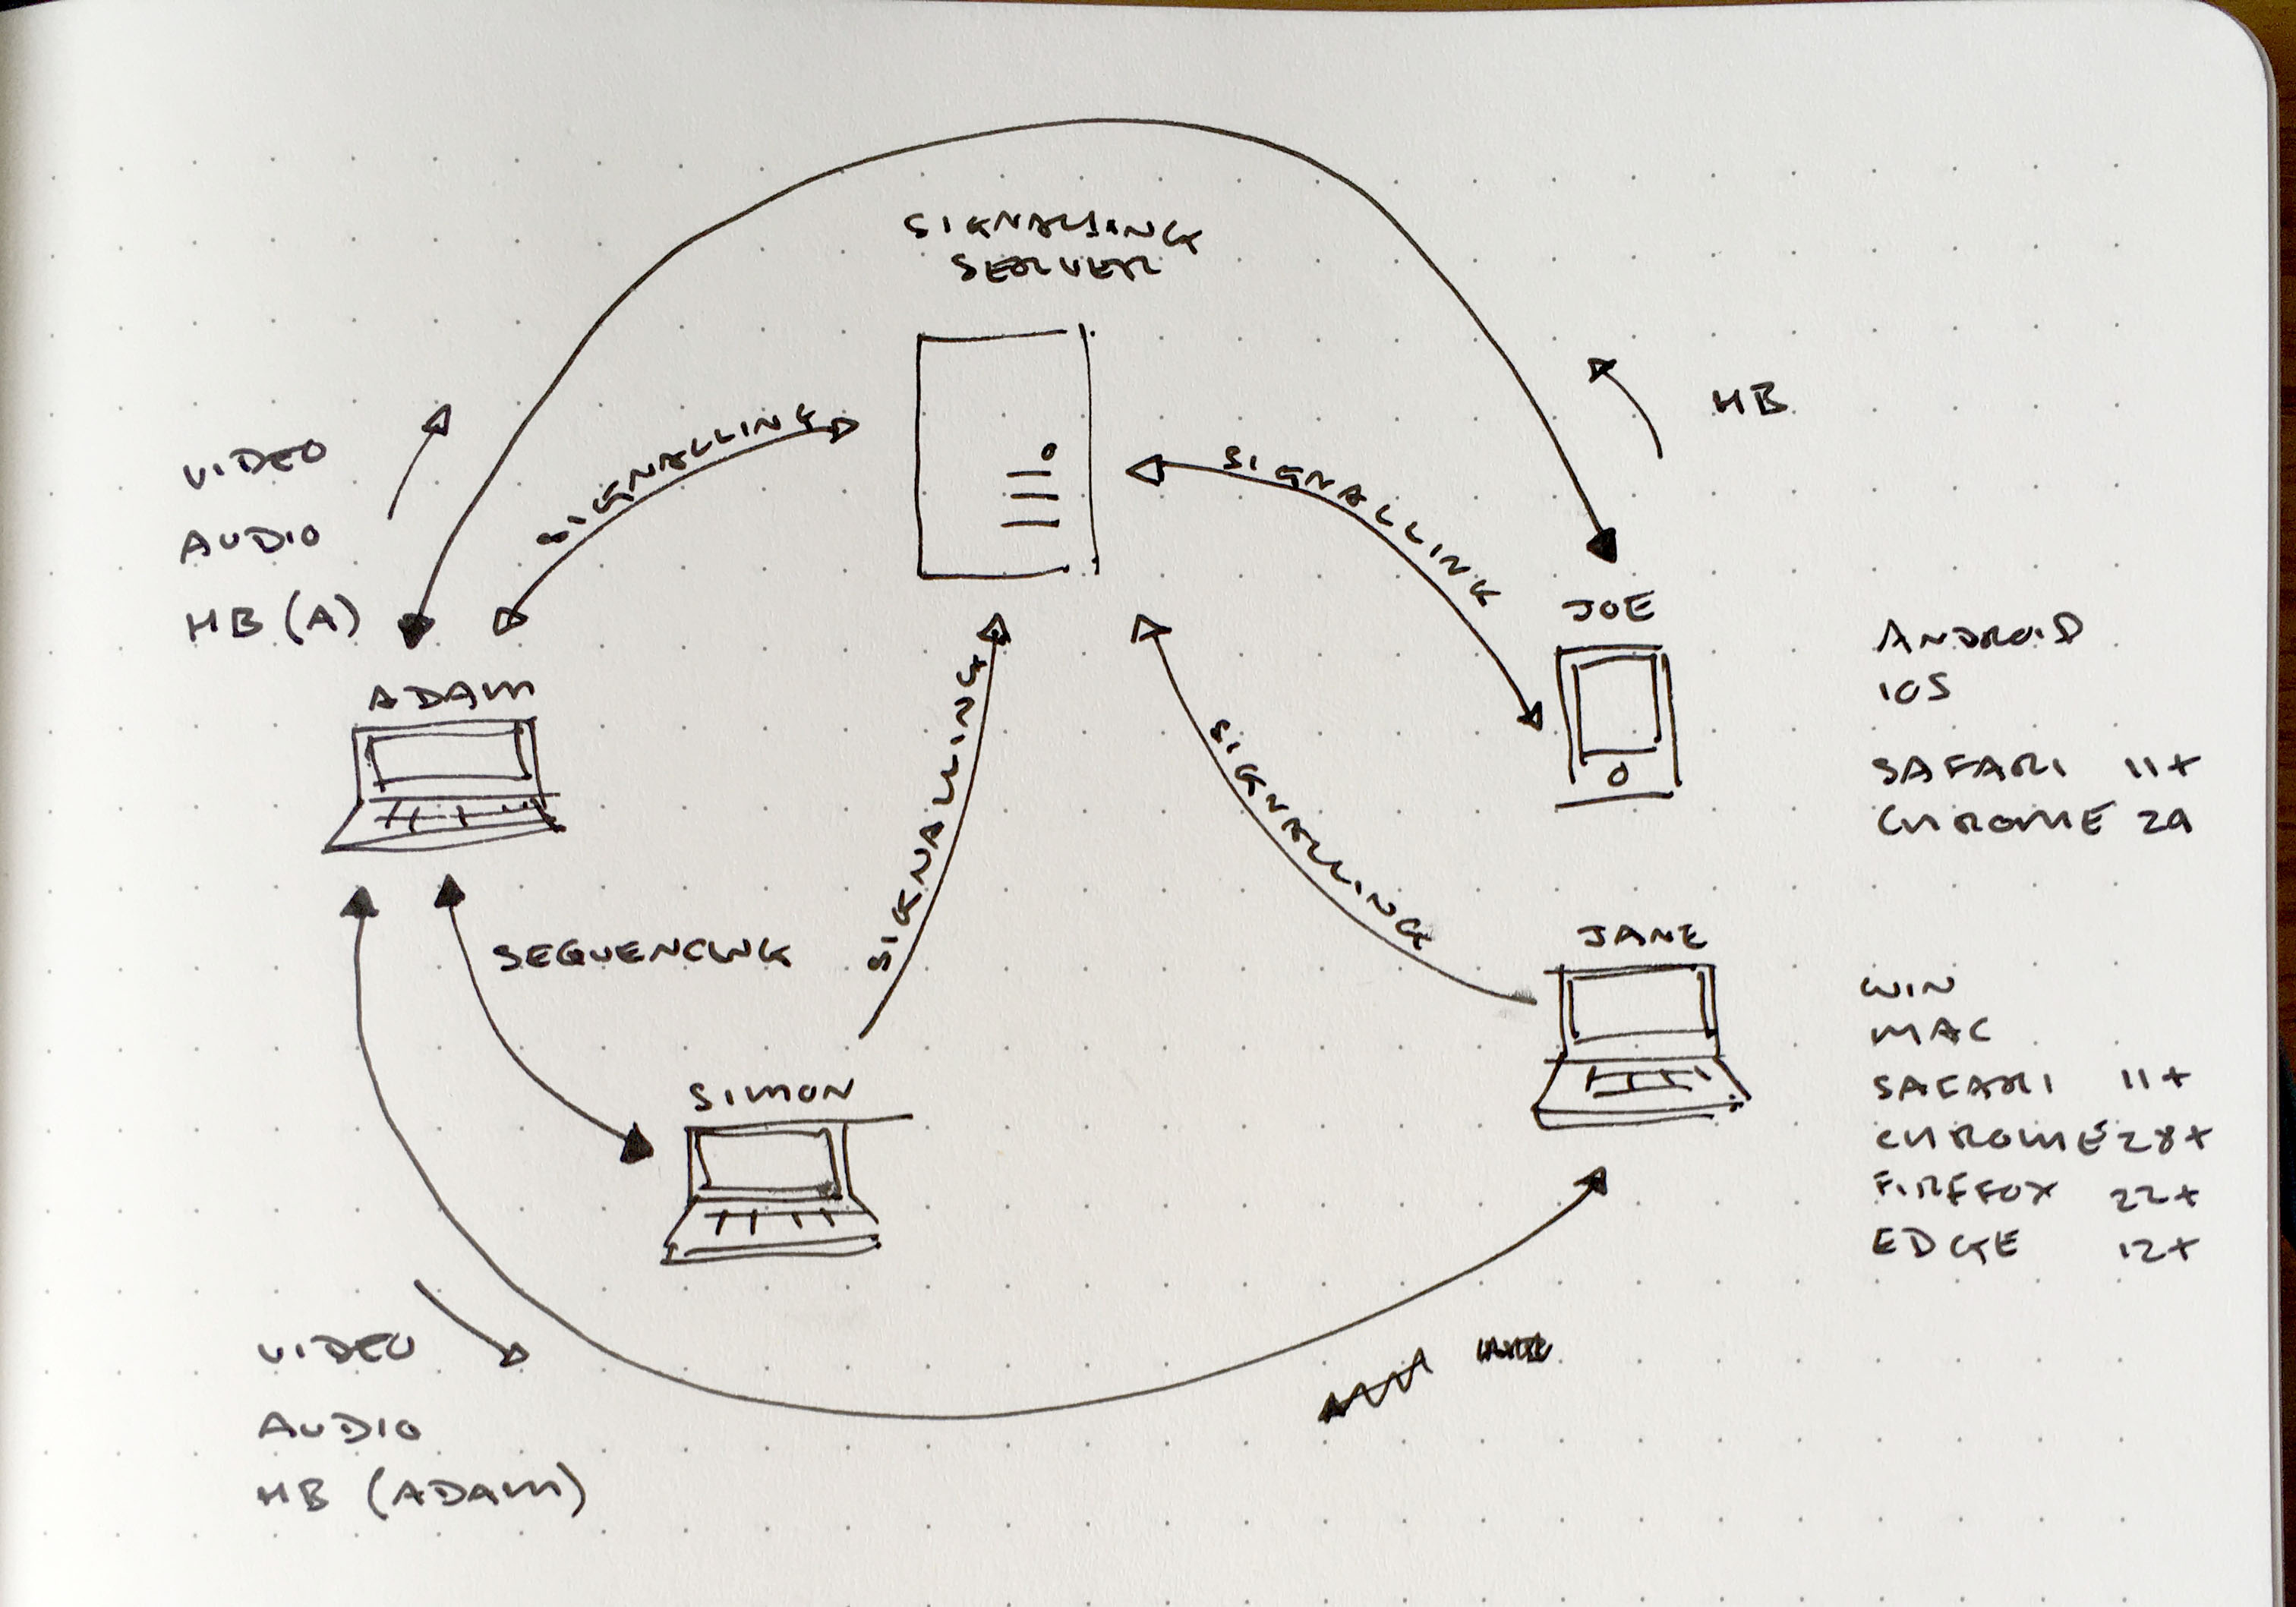 SIGNALLING
SERVER
HB
VIDEO
AUDIO
HB (A)
SIGNALLING
SIGNALLING
ADAM
JOE
ANDROID
IOS
SAFARI 11+
CHROME 29
SIGNALLING
SIGNALLING
SEQUENCING
JANE
WIN
MAC
SAFARI 11+
CHROME 28+
FIREFOX 22+
EDGE 12+
SIMON
VIDEO
AUDIO
HB (ADAM)